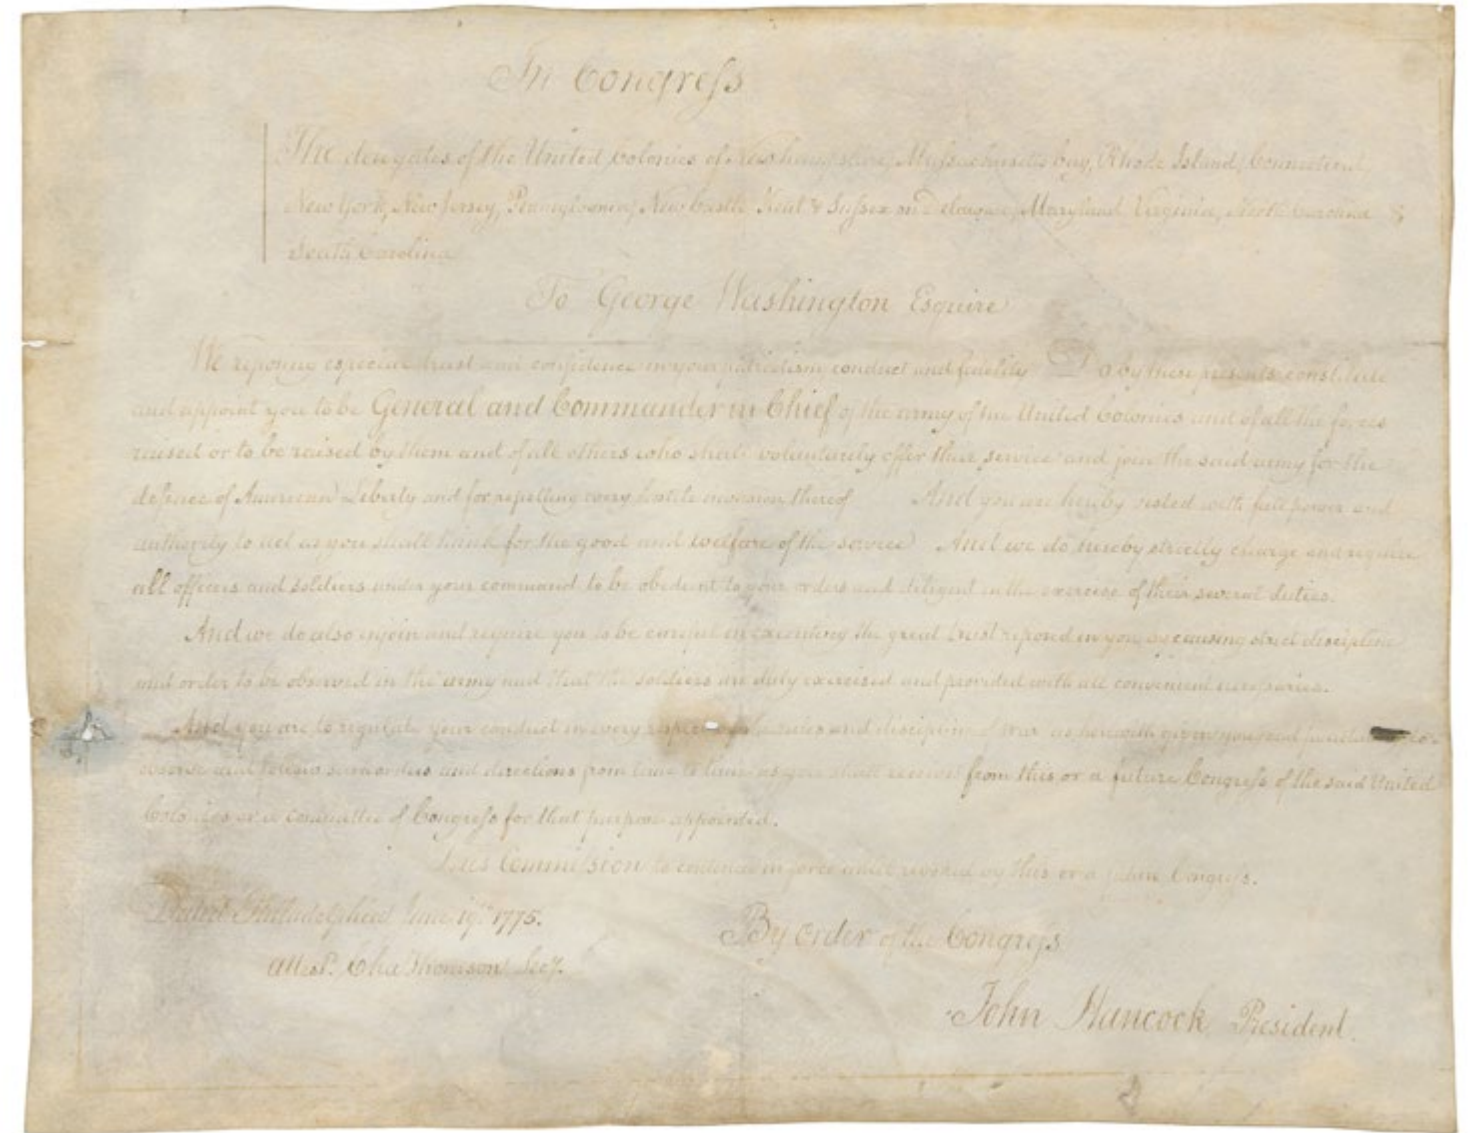 In Congress
The delegates of the United Colonies of New hampshire, Massachusetts bay, Rhode Island, Connecticut
New York, New Jersey, Pennsylvania, New Castle Kent & Sussex on Delaware, Maryland Virginia, North Carolina &
South Carolina
To George Washington Esquire
We reposing especial trust and confidence in your patriotism conduct and fidelity Do by these presents constitute
and appoint you to be General and Commander in Chief of the army of the United Colonies and of all the forces
raised or to be raised by them and of all others who shall voluntarily offer their service and join the said army for the
defence of American Liberty and for repelling every hostile invasion thereof And you are hereby vested with full power and
authority to act as you shall think for the good and welfare of the service And we do hereby strictly charge and require
all officers and soldiers under your command to be obedient to your orders and diligent in the exercise of their several duties.
And we do also enjoin and require you to be careful in executing the great trust reposed in you, by causing strict discipline
and order to be observed in the army and that the soldiers are duly exercised and provided with all convenient necessaries.
And you are to regulate your conduct in every respect by the rules and discipline of war as herewith given you and to
observe and follow such orders and directions from time to time as you shall receive from this or a future Congress of the said United
Colonies or a committee of Congress for that purpose appointed.
This Commission to continue in force until revoked by this or a future Congress.
Dated Philadelphia June 19th 1775.
Attest. Cha Thomson Secy.
By order of the Congress
John Hancock President.